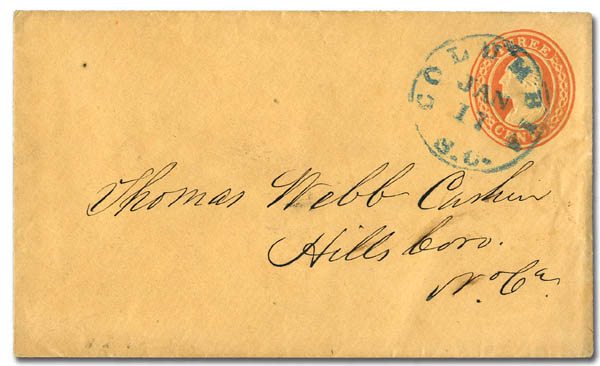 THREE
CENTS
COLUMBIA
JAN
17
S.C.
Thomas Webb Cashier
Hillsboro.
No Ca